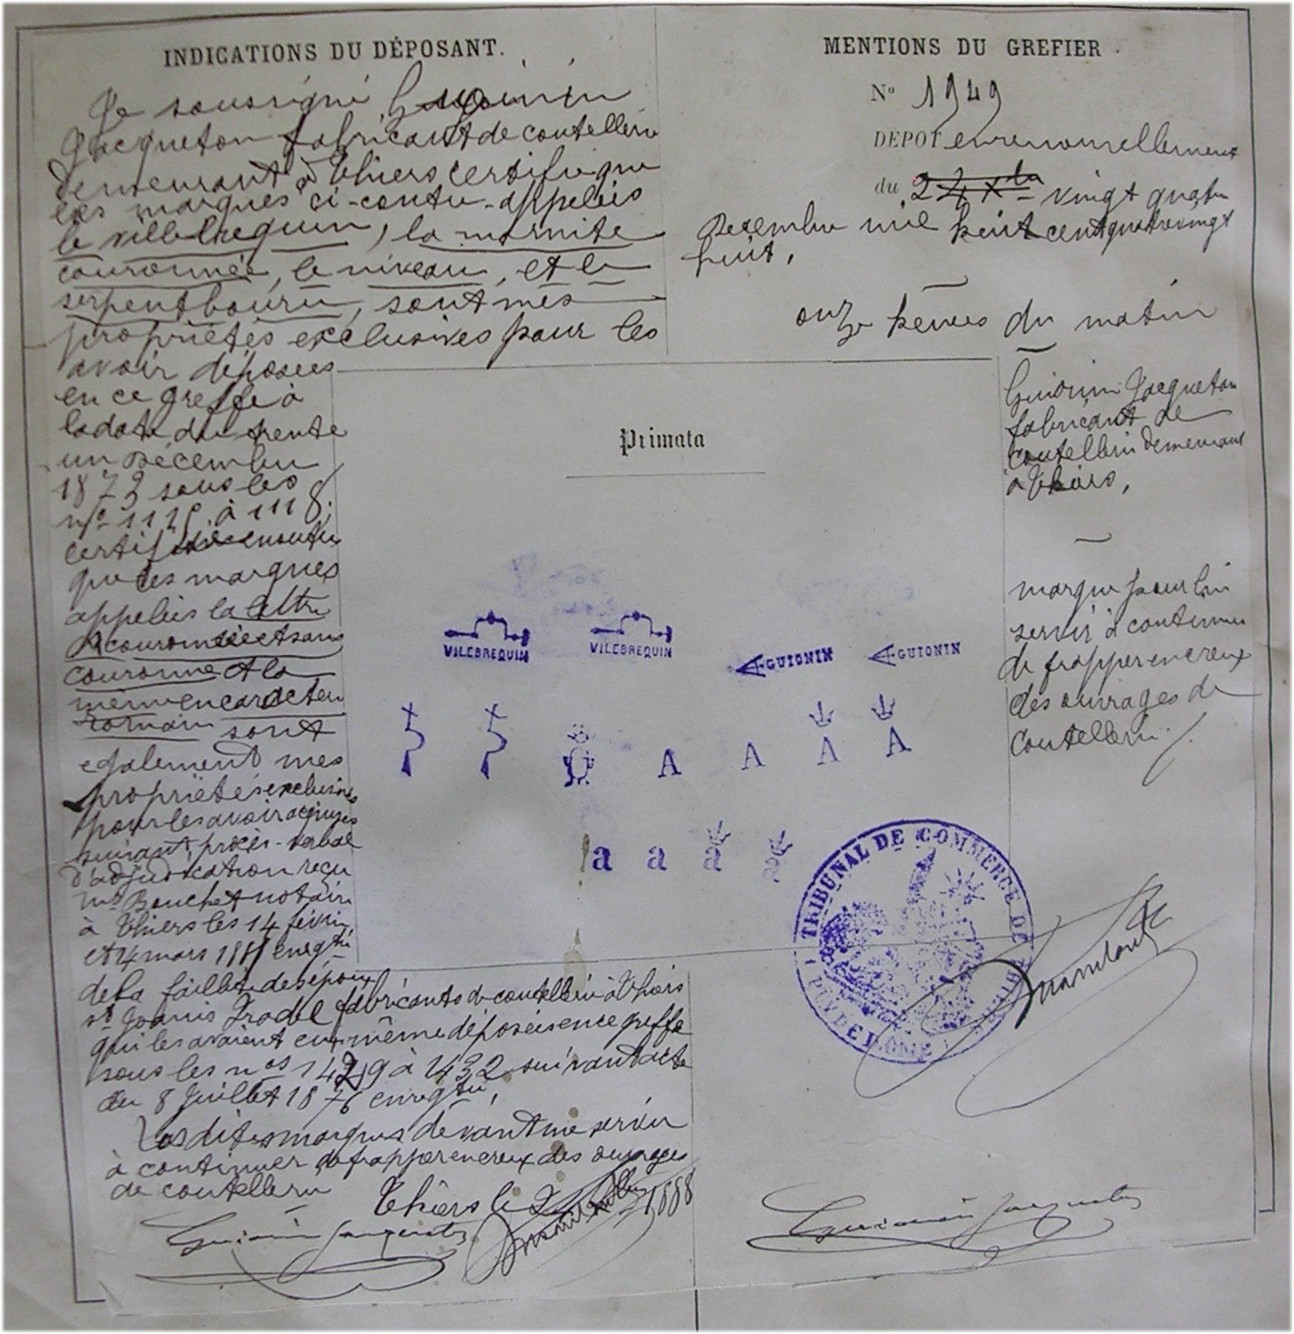 INDICATIONS DU DÉPOSANT.
Je soussigné Guionin
Jacqueton fabricant de coutellerie
demeurant à Thiers certifie que
les marques ci-contre appelées
le villebrequin, la marmite
couronnée, le niveau, et le
serpent bourru, sont mes
propriétés exclusives pour les
avoir déposées
en ce greffe à
la date du trente
un Décembre
1873 sous les
nos 1115 à 1118;
certifie ensuite
que les marques
appelées la lettre
A couronnée et sans
couronne et la
même en caractère
romain sont
également mes
propriétés exclusives
pour les avoir acquises
suivant procès-verbal
d'adjudication reçu
Me Bouchet notaire
à Thiers les 14 février
et 4 mars 1881 enregté
de la faillite des époux
St Joanis fabricants de coutellerie à Thiers
qui les avaient eux-même déposées en ce greffe
sous les nos 1429 à 1432 suivant acte
du 8 Juillet 1876 enregtré,
Les dites marques devant me servir
à continuer de frapper en creux des ouvrages
de coutellerie
Thiers le 24 1888
Guionin Jacqueton
MENTIONS DU GREFIER
No 1949
DÉPOT en renouvellement
du 24 Xbre vingt quatre
Décembre mil huit cent quatre vingt
huit,
onze heures du matin
Guionin Jacqueton
fabricant de
coutellerie demeurant
à Thiers,
marque pour lui
servir à continuer
de frapper en creux
des ouvrages de
coutellerie.
Primata
VILEBREQUIN VILEBREQUIN
GUIONIN GUIONIN
A A A A
a a a a
TRIBUNAL DE COMMERCE DE THIERS
PUY DE DOME
Guionin Jacqueton